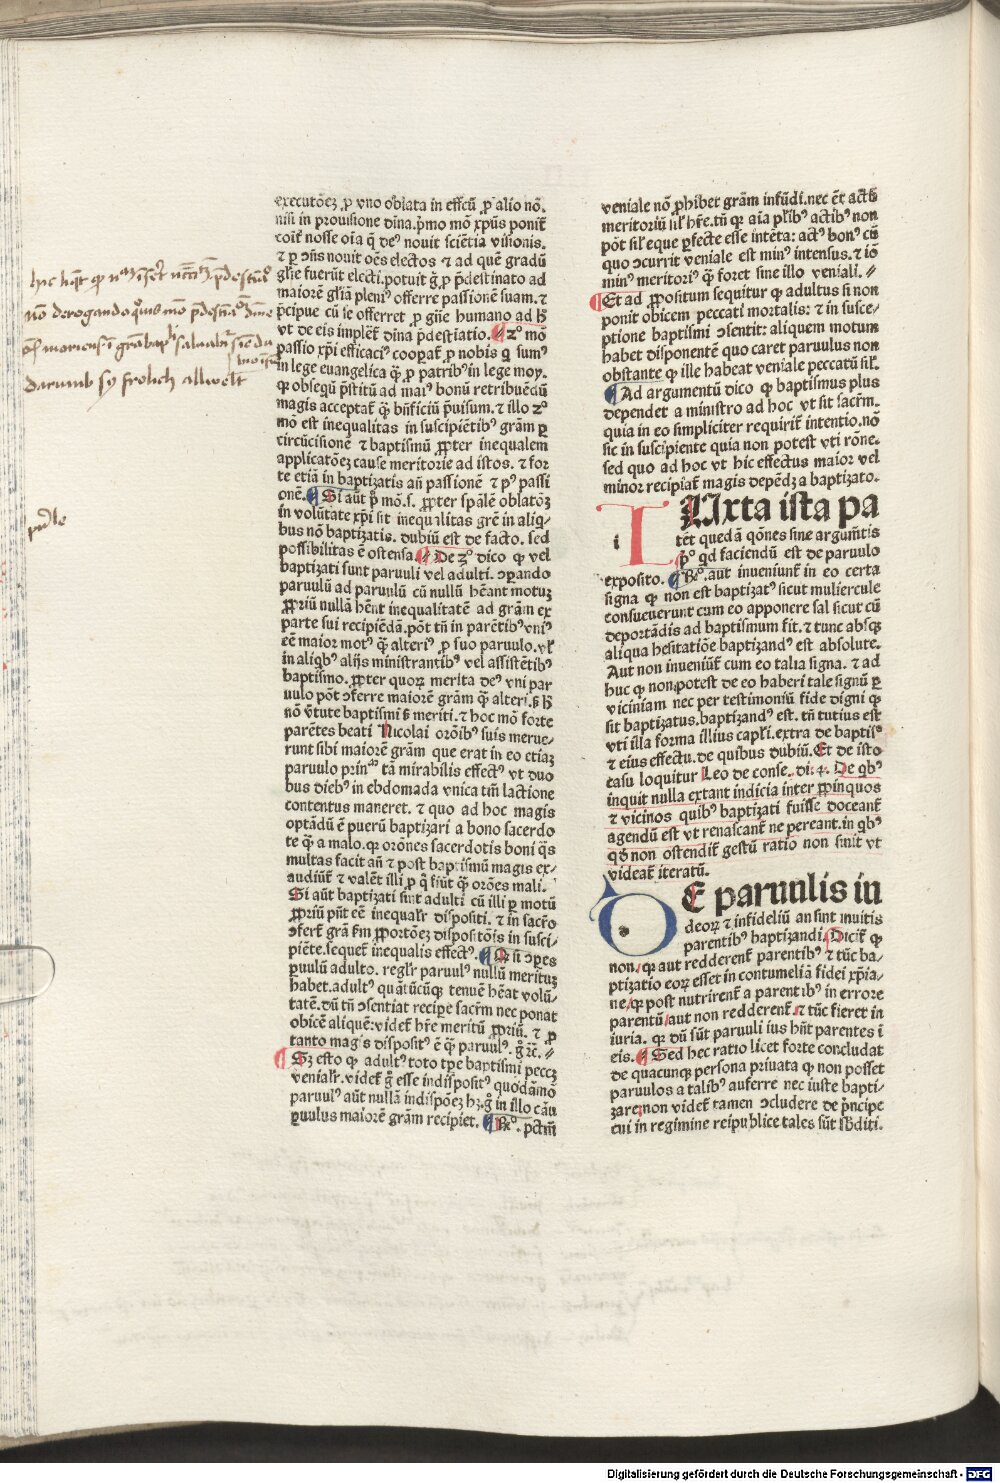 executōeʒ ꝓ vno oblata in effcū ꝓ alio nō.
nisi in prouisione dīna. p̄mo mō xp̄us ponit᷑
ꝯik nosse oīa q̄ deꝰ nouit sciētia visionis.
⁊ ꝑ ꝯn̄s nouit oēs electos ⁊ ad quē gradū
gl̄ie fuerūt elecci. potuit ḡ ꝓ p̄destinato ad
maiorē gl̄iā pleniꝰ offerre passionē suam. ⁊
p̄cipue cū se offerret ꝓ gn̄e humano ad h̄
vt de eis implēt᷑ dīna p̄destiatio. ¶ 2º mō
passio xp̄i efficaciꝰ cooꝑat᷑ ꝓ nobis q̄ sumꝰ
in lege euangelica q̄ꝫ ꝓ patribꝰ in lege moy.
ꝙ obsequ p̄stitū ad maiꝰ bonū retribuēdū
magis acceptat᷑ q̄ꝫ bn̄ficiū p̄uisum. ⁊ illo 2º
mō est inequalitas in suscipiētibꝰ grām ꝑ
circūcisionē ⁊ baptismū ꝓpter inequalem
applicatōeʒ cause meritorie ad istos. ⁊ for
te etiā in baptizatis an̄ passionē ⁊ pꝰ passi
onē. ¶ Si aūt p̄ mō. s. ꝓpter sp̄alē oblatōʒ
in volūtate xp̄i sit inequalitas grē in aliq̄
bus nō baptizatis. dubiū est de facto. sed
possibilitas ē ostensa. ¶ De 3º dico ꝙ vel
baptizati sunt paruuli vel adulti. ꝯꝑando
paruulū ad paruulū cū nullū hēant motuʒ
ꝓpriū nullā hēnt inequalitatē ad grām ex
parte sui recipiēdā. pōt tn̄ in parētibꝰ vniꝰ
eē maior motꝰ q̄ꝫ alteriꝰ ꝓ suo paruulo. vl̓
in aliqbꝰ alijs ministrantibꝰ vel assistētibꝰ
baptismo. ꝓpter quoꝝ merita deꝰ vni par
uulo pōt ꝯferre maiorē grām q̄ꝫ alteri. ß h̄
nō v̄tute baptismi ß meriti. ⁊ hoc mō forte
parētes beati Nicolai orōibꝰ suis merue-
runt sibi maiorē grām que erat in eo etiaʒ
paruulo prin tā mirabilis effectꝰ vt duo
bus diebꝰ in ebdomada vnica tm̄ lactione
contentus maneret. ⁊ quo ad hoc magis
optādū ē puerū baptizari a bono sacerdo
te q̄ꝫ a malo. ꝙ orōnes sacerdotis boni q̄s
multas facit an̄ ⁊ post baptismū magis ex-
audiūt᷑ ⁊ valēt illi ꝓ q̄ fiūt q̄ꝫ orōes mali.
Si aūt baptizati sint adulti cū illi ꝑ motū
ꝓpriū pn̄t eē inequalr̄ dispositi. ⁊ in sacr̄o
ꝯfert᷑ grā fm̄ ꝓportōeʒ dispositōis in susci-
piēte. sequet᷑ inequalis effectꝰ. ¶ Q̄ si ꝯꝑes
ꝑuulū adulto. regl̓r paruulꝰ nullū merituʒ
habet. adultꝰ quātūcūqꝫ tenuē hēat volū-
tatē. dū tn̄ ꝯsentiat recipe sacrm̄ nec ponat
obicē aliquē: videt᷑ hr̄e meritū ꝓpriū. ⁊ ꝓ
tanto magis dispositꝰ ē q̄ꝫ paruulꝰ. ḡ rc̄.
¶ Sʒ esto ꝙ adultꝰ toto tp̄e baptismi peccʒ
venialr̄. videt᷑ ḡ esse indispositꝰ quodāmō
paruulꝰ aūt nullā indispōeʒ hʒ. ḡ in illo cāu
ꝑuulus maiorē grām recipiet. ¶ R̄º. pctm̄
veniale nō ꝓhibet grām infūdi. nec ēt actū
meritoriū sil̓ hr̄e. tn̄ qꝛ aīa pl̓ibꝰ actibꝰ non
pōt sil̓ eque ꝑfecte esse intēta: actꝰ bonꝰ cū
quo ꝯcurrit veniale est minꝰ intensus. ⁊ iō
minꝰ meritoriꝰ q̄ꝫ foret sine illo veniali.
¶ Et ad ꝓpositum sequitur ꝙ adultus si non
ponit obicem peccati mortalis: ⁊ in susce-
ptione baptismi ꝯsentit: aliquem motum
habet disponentē quo caret paruulus non
obstante ꝙ ille habeat veniale peccatū sil̓.
¶ Ad argumentū dico ꝙ baptismus plus
dependet a ministro ad hoc vt sit sacrm̄.
quia in eo simpliciter requirit᷑ intentio. nō
sic in suscipiente quia non potest vti rōne.
sed quo ad hoc vt hic effectus maior vel
minor recipiat᷑ magis depēdʒ a baptizato.
IUxta ista pa
tēt quedā qōnes sine argumētis
p̄º qd faciendū est de paruulo
exposito. ¶ R̄º. aut inueniunt᷑ in eo certa
signa ꝙ non est baptizatꝰ sicut muliercule
consueuerunt cum eo apponere sal sicut cū
deportādis ad baptismum fit. ⁊ tunc absqꝫ
aliqua hesitatiōe baptizandꝰ est absolute.
Aut non inueniūt᷑ cum eo talia signa. ⁊ ad
huc ꝙ non potest de eo haberi tale signū ꝑ
viciniam nec per testimoniū fide digni ꝙ
sit baptizatus. baptizandꝰ est. tn̄ tutius est
vti illa forma illius capl̓i. extra de baptisº
⁊ eius effectu. de quibus dubiū. Et de isto
casu loquitur Leo de conse. di. 4. De qbꝰ
inquit nulla extant indicia inter ꝓpinquos
⁊ vicinos quibꝰ baptizati fuisse doceant᷑
agendū est vt renascant᷑ ne pereant. in qbꝰ
qd non ostendit᷑ gestū ratio non sinit vt
videat᷑ iteratū.
DE paruulis iu
deoꝝ ⁊ infideliū an sint inuitis
parentibꝰ baptizandi. Dicit᷑ ꝙ
non. qꝛ aut redderent᷑ parentibꝰ ⁊ tūc ba-
ptizatio eoꝝ esset in contumeliā fidei xp̄ia-
ne. qꝛ post nutrirent᷑ a parentibꝰ in errore
parentū aut non redderent᷑. ⁊ tūc fieret in
iuria. qꝛ dū sūt paruuli ius hn̄t parentes ī
eis. ¶ Sed hec ratio licet forte concludat
de quacunqꝫ persona priuata ꝙ non posset
paruulos a talibꝰ auferre nec iuste bapti-
zare. non videt᷑ tamen ꝯcludere de p̄ncipe
cui in regimine reipublice tales sūt sb̄diti.
darumb sy frolich allwelt
Digitalisierung gefördert durch die Deutsche Forschungsgemeinschaft - DFG